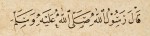 قَالَ رَسُولُ اللهِ صَلَّى اللهُ عَلَيْهِ وَسَلَّمَ